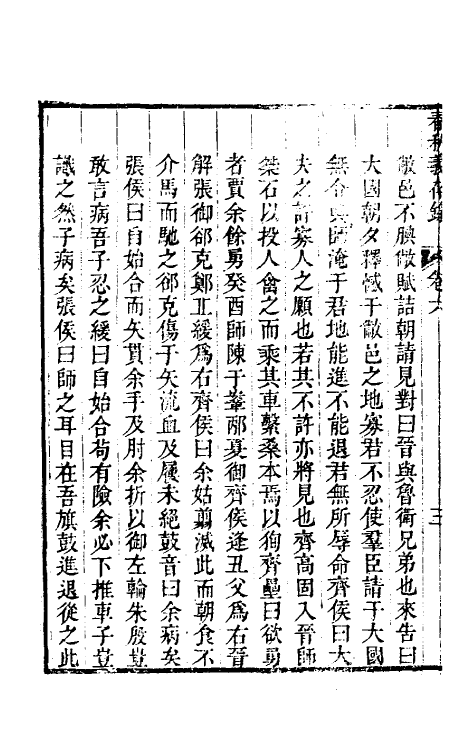 春秋義存錄
卷六
三
敝邑不腆敝賦詰朝請見對曰晉與魯衛兄弟也來告曰
大國朝夕釋憾于敝邑之地寡君不忍使羣臣請于大國
無令輿師淹于君地能進不能退君無所辱命齊侯曰大
夫之許寡人之願也若其不許亦將見也齊高固入晉師
桀石以投人禽之而乘其車繫桑本焉以狥齊壘曰欲勇
者賈余餘勇癸酉師陳于鞌邴夏御齊侯逢丑父爲右晉
解張御郤克鄭丘緩爲右齊侯曰余姑翦滅此而朝食不
介馬而馳之郤克傷于矢流血及屨未絕鼓音曰余病矣
張侯曰自始合而矢貫余手及肘余折以御左輪朱殷豈
敢言病吾子忍之緩曰自始合苟有險余必下推車子豈
識之然子病矣張侯曰師之耳目在吾旗鼓進退從之此